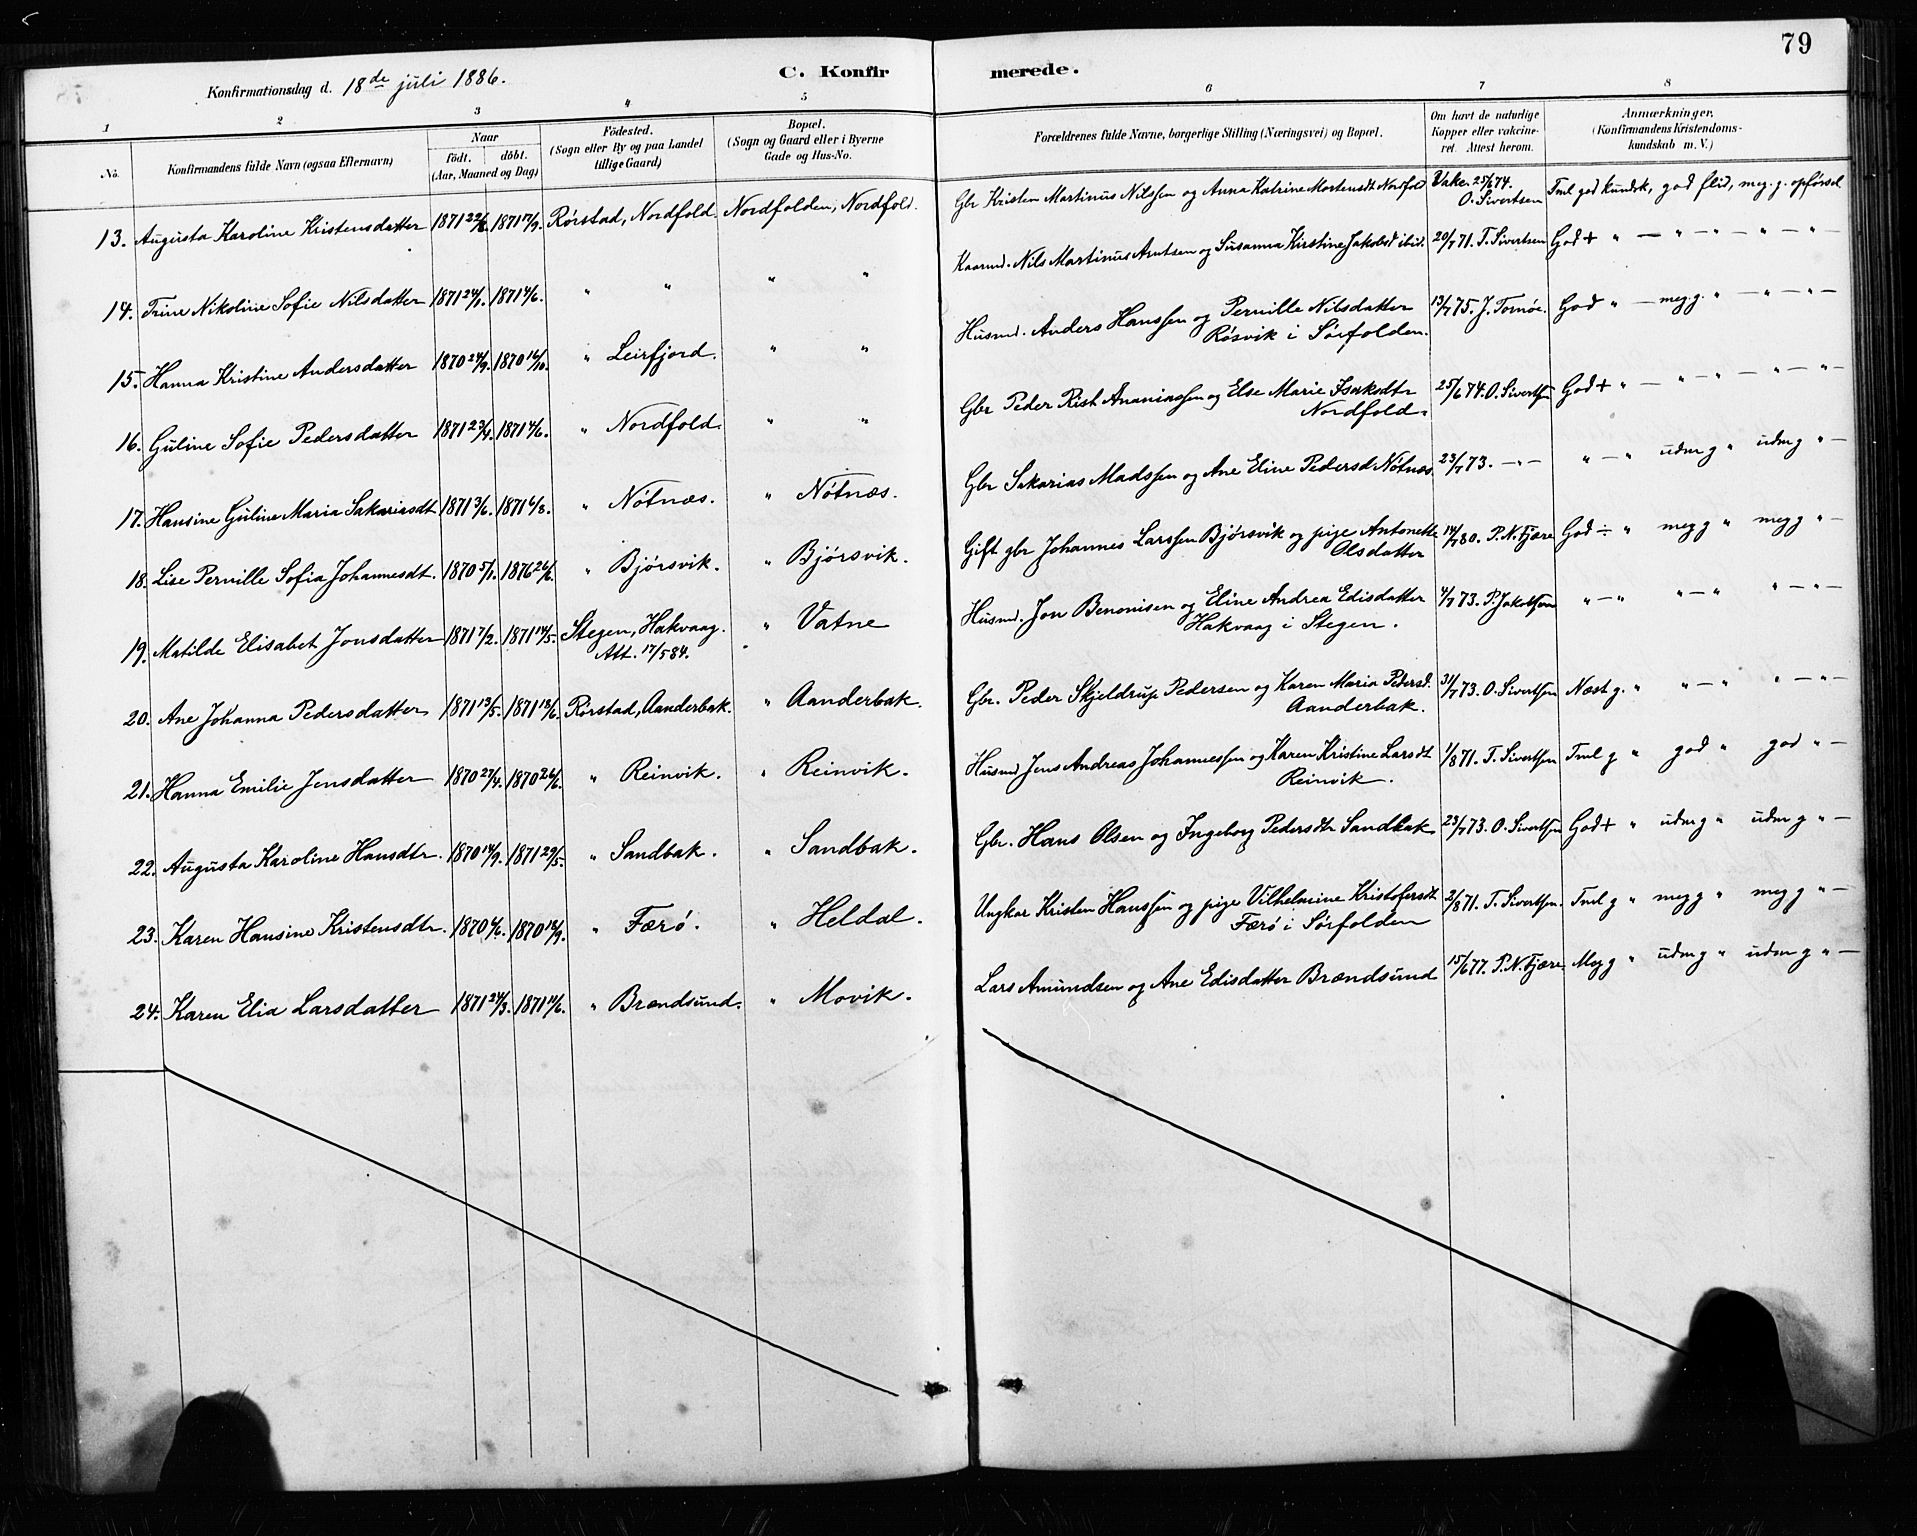 79
Konfirmationsdag d. 18de juli 1886.
C. Konfirmerede.
1 2 3 4 5 6 7 8
No. Konfirmandens fulde Navn (ogsaa Efternavn) Naar födt. döbt. (Aar, Maaned og Dag) Födested. (Sogn eller By og paa Landet tillige Gaard) Bopæl. (Sogn og Gaard eller i Byerne Gade og Hus-No. Forældrenes fulde Navne, borgerlige Stilling (Næringsvei) og Bopæl. Om havt de naturlige Kopper eller vakcineret. Attest herom. Anmærkninger. (Konfirmandens Kristendomskundskab m. V.)
13. Augusta Karoline Kristensdatter 1871 22/6. 1871 17/9. Rørstad, Nordfold. Nordfolden, Nordfold. Gbr Kristen Martinus Nilssen og Anna Katrine Mortensdt Nordfold Vakc. 25/6 74. O. Sivertsen Tml god kundsk, god flid, meg. g. opførsel
14. Trine Nikoline Sofie Nilsdatter 1871 24/1. 1871 4/6. " " " " Kaarmd. Nils Martinus Arntsen og Susanna Kirstine Jakobsd ibid. 20/7 71. T. Sivertsen God + " — " — " — " — " —
15. Hanna Kristine Andersdatter 1870 24/9. 1870 16/10. " Leirfjord. " " Husmd. Anders Hanssen og Pernille Nilsdatter Røsvik i Sørfolden. 13/7 75. J. Tornøe. God " — meg. g. " — " — " —
16. Guline Sofie Pedersdatter 1871 23/4. 1871 4/6. " Nordfold. " " Gbr Peder Rist Ananiassen og Else Marie Isaksdtr Nordfold. 25/6 74. O. Sivertsen God + " — " — " — " — " —
17. Hansine Guline Maria Sakariasdt 1871 3/6. 1871 6/8. " Nøtnæs. " Nøtnæs. Gbr Sakarias Madssen og Ane Eline Pedersd Nøtnæs. 23/7 73. — " — " — " udm g " udm g " —
18. Lise Pernille Sofia Johannesdt. 1870 5/1. 1876 26/6. " Bjørsvik. " Bjørsvik. Gift gbr Johannes Larssen Bjørsvik og pige Antonette Olsdatter 14/7 80. P. N. Fjære God ÷ " meg g " meg g " —
19. Matilde Elisabet Jonsdatter 1871 7/2. 1871 14/5. Stegen, Hakvaag. Att. 17/5 84. " Vatne Husmd. Jon Benonisen og Eline Andrea Edisdatter Hakvaag i Stegen. 4/7 73. P. Jakobsen " — " " — " " — " —
20. Ane Johanna Pedersdatter 1871 13/5. 1871 18/6. Rørstad, Aanderbak. " Aanderbak. Gbr. Peder Skjeldrup Pedersen og Karen Maria Pedersd. Aanderbak. 31/7 73. O. Sivertsen Næst g. " " — " " — " —
21. Hanna Emilie Jensdatter 1870 27/4. 1870 26/6. " Reinvik. " Reinvik. Husmd Jens Andreas Johannessen og Karen Kristine Larsdt Reinvik. 1/8 71. T. Sivertsen Tml g " god " god " —
22. Augusta Karoline Hansdtr. 1870 14/9. 1871 29/5. " Sandbak. " Sandbak. Gbr. Hans Olsen og Ingeborg Pedersdtr Sandbak 23/7 73. O. Sivertsen God + " udm g " udm g " —
23. Karen Hansine Kristensdtr. 1870 4/6. 1870 18/9. " Færø. " Heldal. Ungkar Kristen Hanssen og pige Vilhelmine Kristofersdt Færø i Sørfolden 2/8 71. T. Sivertsen. Tml g " meg g " meg g " —
24. Karen Elia Larsdatter 1871 24/3. 1871 11/6. " Brændsund. " Movik. Lars Amundsen og Ane Edisdatter Brændsund 15/6 77. P. N. Fjære Meg g " udm g " udm g " —